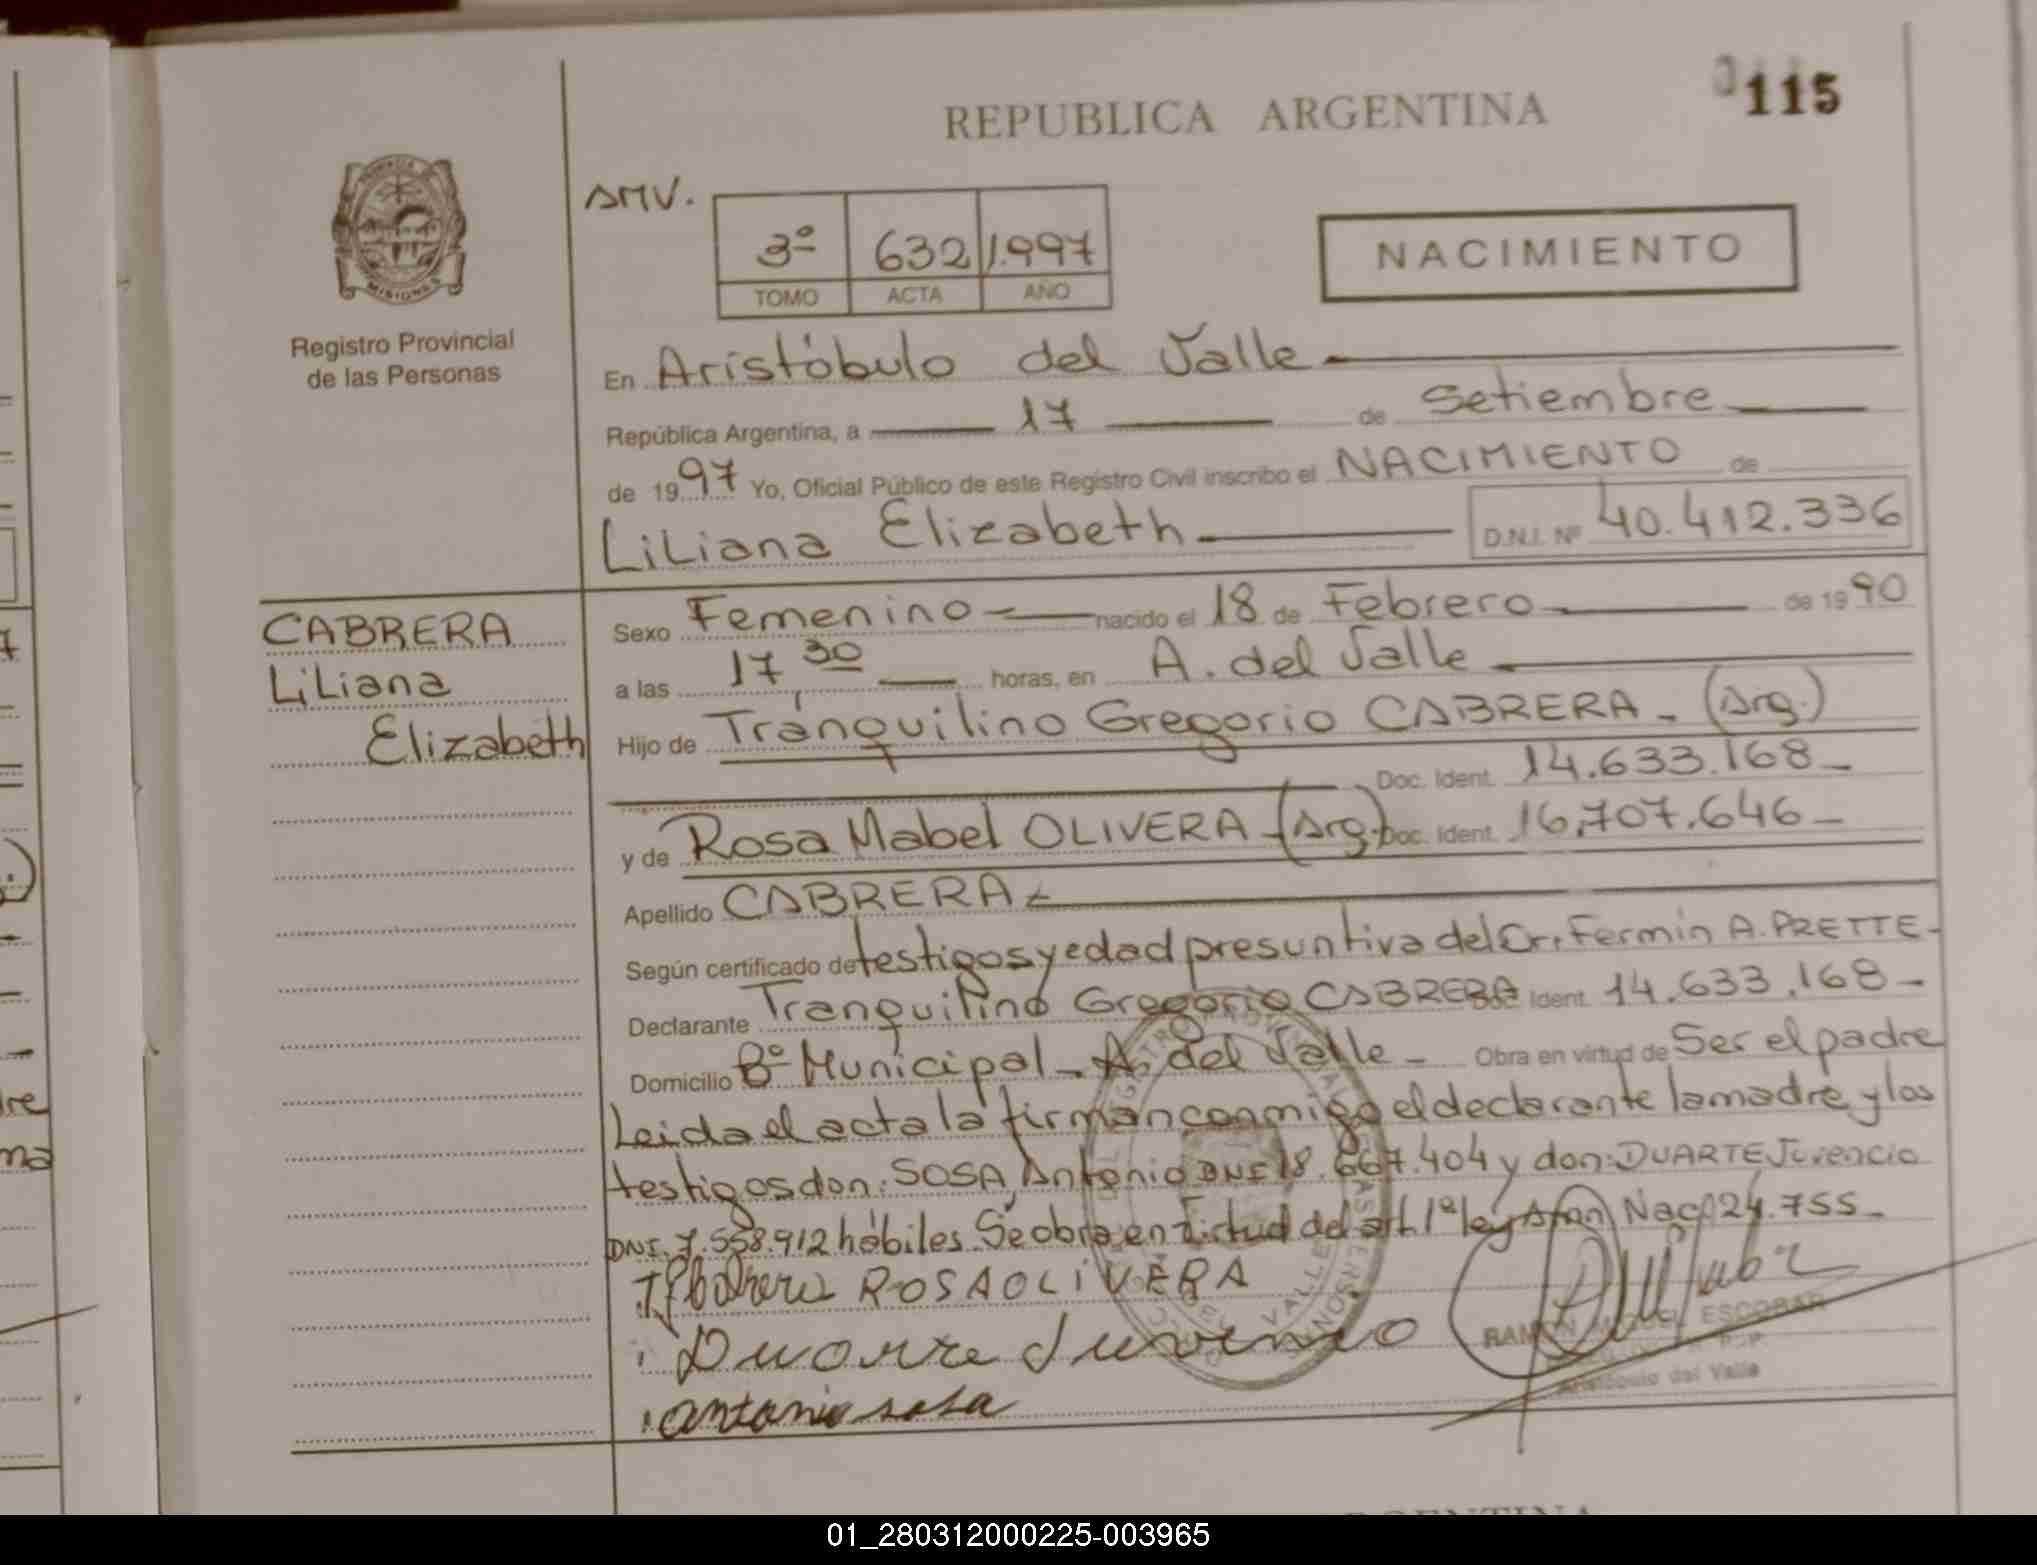 0115
REPUBLICA ARGENTINA
AMV.
3º 632 1.997
TOMO ACTA AÑO
NACIMIENTO
MISIONES
Registro Provincial
de las Personas
En Aristóbulo del Valle
República Argentina, a 17 de Setiembre
de 1997 Yo, Oficial Público de este Registro Civil inscribo el NACIMIENTO de
Liliana Elizabeth D.N.I. Nº 40.412.336
CABRERA
Liliana
Elizabeth
Sexo Femenino nacido el 18 de Febrero de 1990
a las 17,30 horas, en A. del Valle
Hijo de Tranquilino Gregorio CABRERA - (Arg.)
Doc. Ident. 14.633.168-
y de Rosa Mabel OLIVERA - (Arg.) Doc. Ident. 16.707.646-
Apellido CABRERA
Según certificado de testigos y edad presuntiva del Dr. Fermin A. PRETTE-
Declarante Tranquilino Gregorio CABRERA Ident. 14.633.168-
Domicilio Bº Municipal - A. del Valle - Obra en virtud de Ser el padre
Leida el acta la firman conmigo el declarante la madre y los
testigos don: SOSA, Antonio DNI 18.667.404 y don: DUARTE Juvencio
DNI. 7.558.912 hábiles. Se obra en virtud del art. 1º ley Nac 24.755-
ROSA OLIVERA
Duarte Juvencio
antonio sosa
RAMON MIGUEL ESCOBAR
Aristóbulo del Valle
01_280312000225-003965